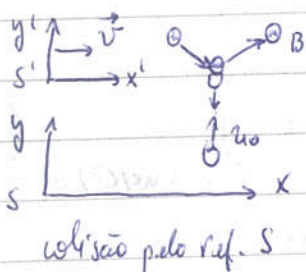 y'
v
S'
x'
B
y
u₀
S
x
colisão pelo ref. S